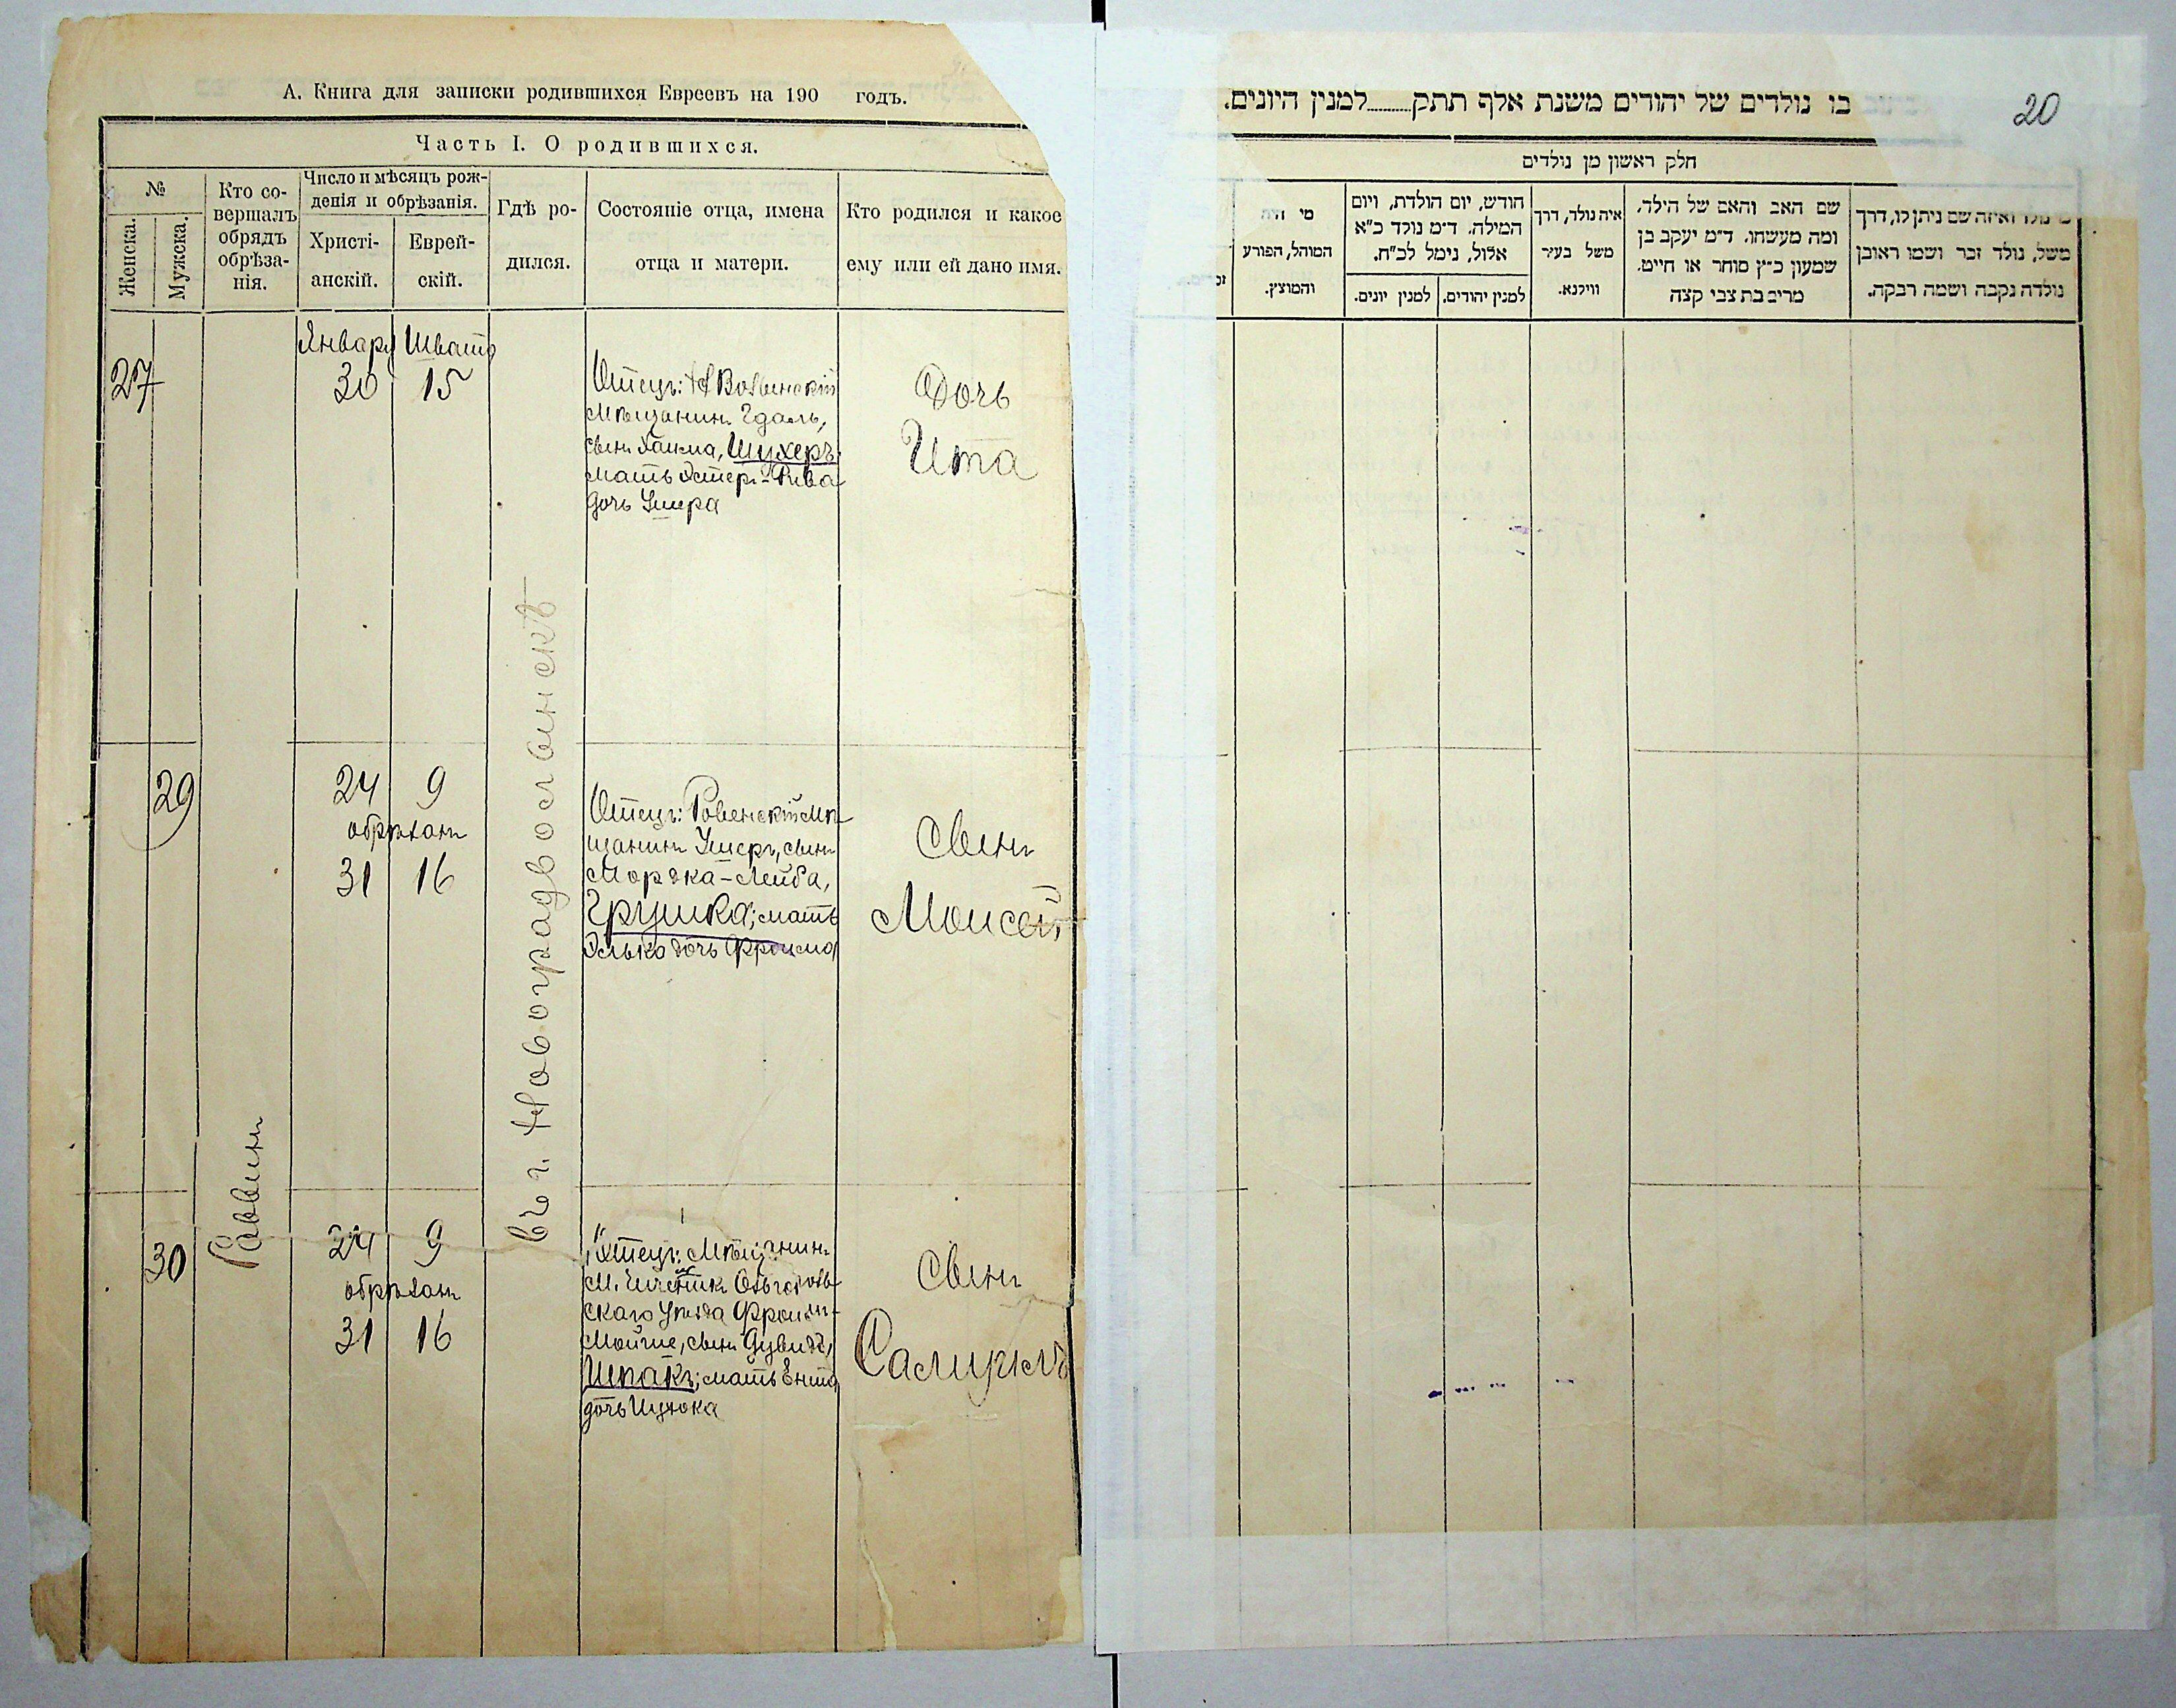 А. Книга для записки родившихся Евреевъ на 190 годъ.
Часть I. О родившихся.
№
Женска.
Мужска.
Кто со-
вершалъ
обрядъ
обрѣза-
нія.
Число и мѣсяцъ рож-
денія и обрѣзанія.
Христі-
анскій.
Еврей-
скій.
Гдѣ ро-
дился.
Состояніе отца, имена
отца и матери.
Кто родился и какое
ему или ей дано имя.
Январ Шватъ
27
30 15
Отецъ: НВолынскій
Мѣщанинъ Гдаль,
сынъ Хаима, Шухеръ,
мать Эстеръ-Рива
дочь Умера
Дочь
Ита
въ г. Новоградволынскѣ
Раввинъ
29
24 9
обрѣзанъ
31 16
Отецъ: Ровенскій мѣ-
щанинъ Ушеръ, сынъ
Мордка-Лейба,
Грушка; мать
Элька дочь Фроима
Сынъ
Моисей
30
24 9
обрѣзанъ
31 16
Отецъ: Мѣщанинъ
скаго Уѣзда Фроимъ-
Мойше, сынъ Дувидъ,
Шпакъ; мать Ента
дочь Ицхока
Сынъ
Самуилъ
20
נולדים של יהודים משנת אלף תתק למנין היונים.
חלק ראשון מן נולדים
נולד ואיזה שם ניתן לו, דרך
משל, נולד זכר ושמו ראובן
נולדה נקבה ושמה רבקה.
שם האב והאם של הילד,
ומה מעשהו. ד״מ יעקב בן
שמעון כ״ץ סוחר או חייט.
מרים בת צבי קצה
איה נולד, דרך
משל בעיר
ווילנא.
חודש, יום הולדת, ויום
המילה. ד״מ נולד כ״א
אלול, נימל לכ״ח.
למנין יהודים.
למנין יונים.
מי היה
המוהל, הפורע
והמוצץ.